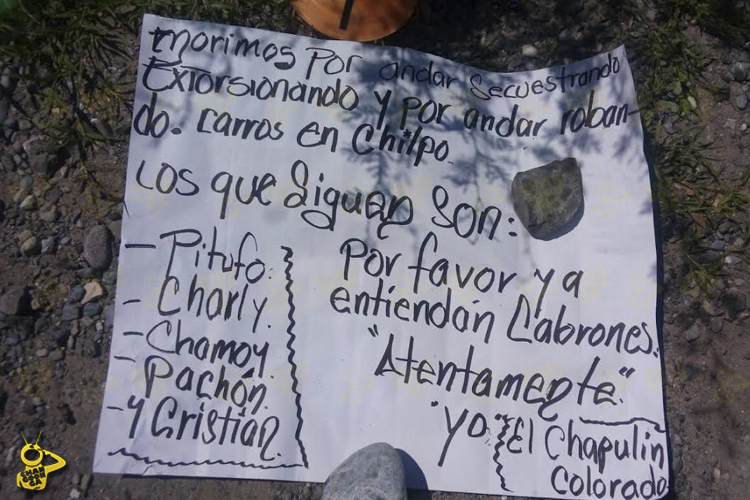 morimos por andar Secuestrando
Extorsionando y por andar roban-
do. carros en Chilpo.
Los que Siguen Son:
- Pitufo.
- Charly.
- Chamoy
- Pachón.
- y Cristian.
por favor ya
entiendan Cabrones.
"Atentamente"
"yo. El Chapulin
Colorado